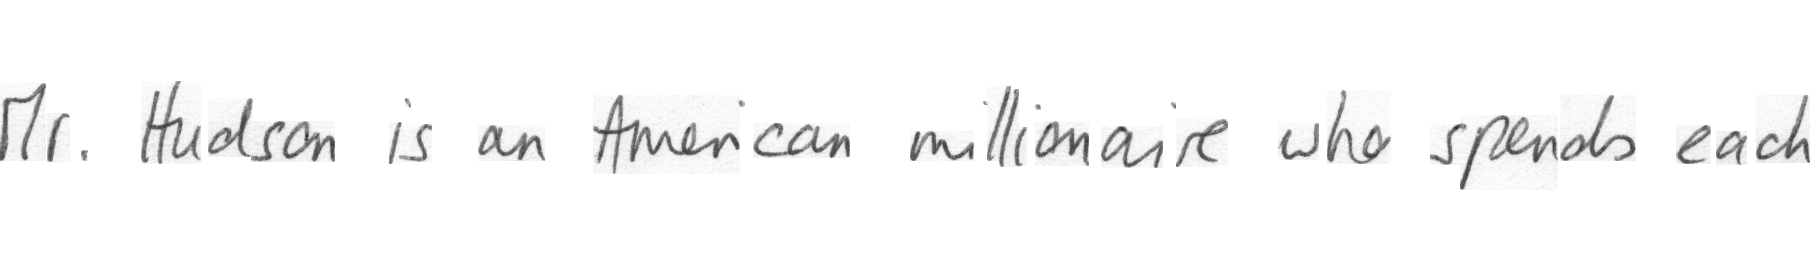 Mr. Hudson is an American millionaire who spends each